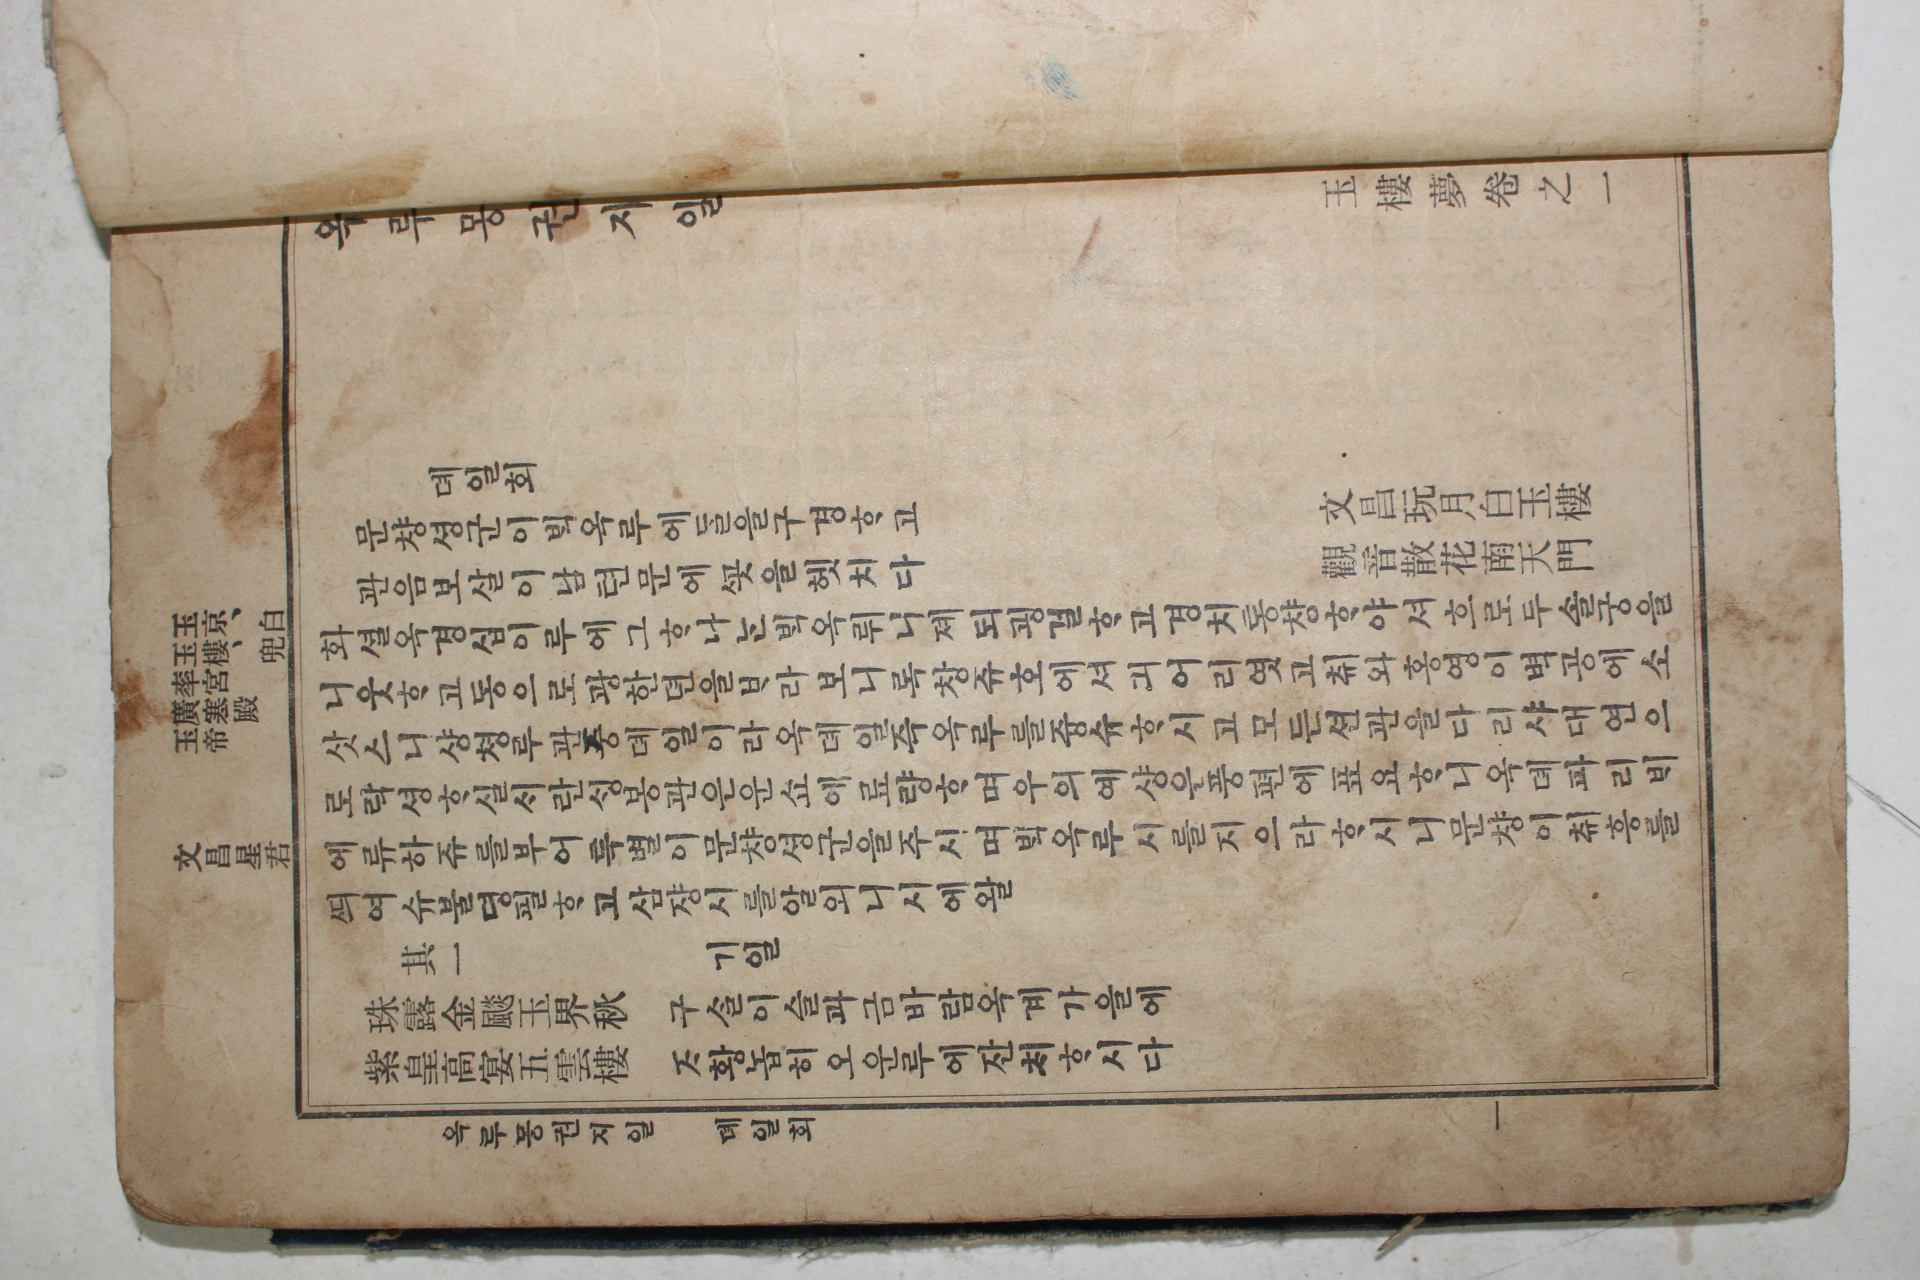 옥루몽권지일
玉樓夢卷之一
뎨일회
문챵셩군이ᄇᆡᆨ옥루에ᄃᆞᆯ을구경ᄒᆞ고
文昌玩月白玉樓
관음보살이남텬문에ᄭᅩᆺ을헷치다
觀音散花南天門
화셜옥경십이루에그ᄒᆞ나ᄂᆞᆫᄇᆡᆨ옥뤼니졔되굉걸ᄒᆞ고경치통챵ᄒᆞ야셔흐로두솔궁을
니웃ᄒᆞ고동으로광한뎐을ᄇᆞ라보니록창쥬호에셔긔어리엿고취와홍영이벽공에소
삿스니샹쳥루관즁뎨일이라옥뎨일즉옥루를즁슈ᄒᆞ시고모든션관을다리샤대연으
로락셩ᄒᆞ실ᄉᆡ란ᄉᆡᆼ봉관은운쇼에료량ᄒᆞ며우의예샹은풍편에표요ᄒᆞ니옥뎨파리ᄇᆡ
에류하쥬를부어특별이문챵셩군을주시며ᄇᆡᆨ옥루시를지으라ᄒᆞ시니문챵이취흥를
ᄯᅴ여슈불뎡필ᄒᆞ고삼쟝시를알외니시에왈
其一 기일
珠露金飈玉界秋 구슬이슬과금바람옥계가을에
紫皇高宴五雲樓 ᄌᆞ황놉히오운루에잔ᄎᆡᄒᆞ시다
玉京、白
玉樓、兜
率宮
廣寒殿
玉帝
文昌星君
옥루몽권지일 뎨일회 一